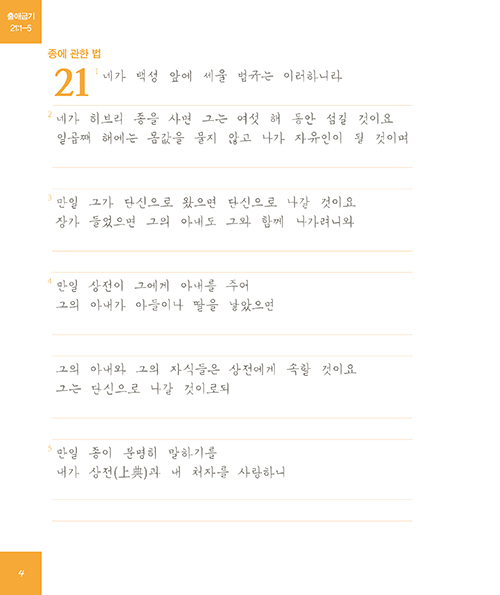 출애굽기
21:1-5
종에 관한 법
21 1 네가 백성 앞에 세울 법규는 이러하니라
2 네가 히브리 종을 사면 그는 여섯 해 동안 섬길 것이요
일곱째 해에는 몸값을 물지 않고 나가 자유인이 될 것이며
3 만일 그가 단신으로 왔으면 단신으로 나갈 것이요
장가 들었으면 그의 아내도 그와 함께 나가려니와
4 만일 상전이 그에게 아내를 주어
그의 아내가 아들이나 딸을 낳았으면
그의 아내와 그의 자식들은 상전에게 속할 것이요
그는 단신으로 나갈 것이로되
5 만일 종이 분명히 말하기를
내가 상전(上典)과 내 처자를 사랑하니
4